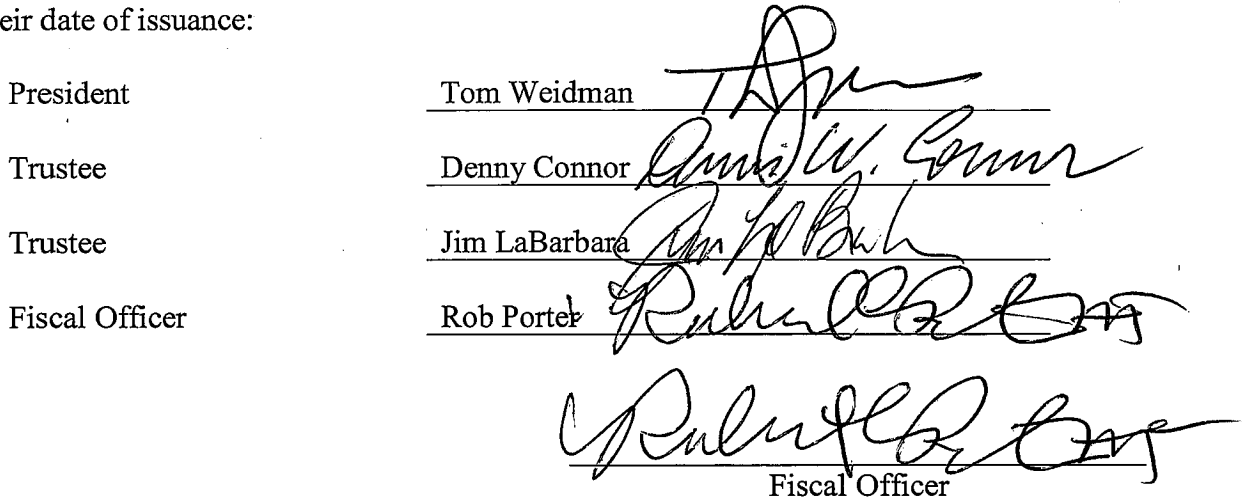 eir date of issuance:
President Tom Weidman
Trustee Denny Connor Dennis W. Connor
Trustee Jim LaBarbara
Fiscal Officer Rob Porter
Fiscal Officer